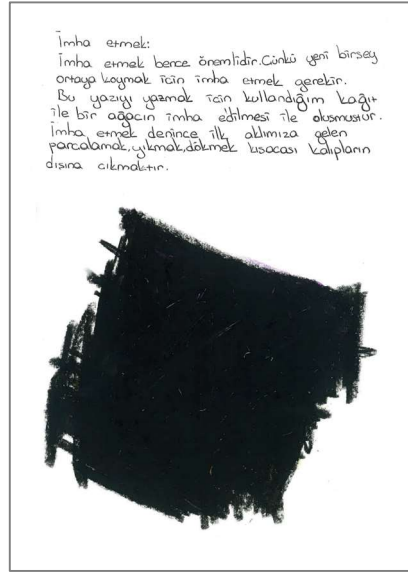 İmha etmek:
İmha etmek bence önemlidir. Günkü yeni birsey
ortaya koymak için imha etmek gerekir.
Bu yazıyı yazmak için kullandığım kağıt
ile bir ağacın imha edilmesi ile olusmustur.
İmha etmek denince ilk aklımıza gelen
parcalamak, yıkmak, dökmek kısacası kalıpların
dısına cıkmaktır.